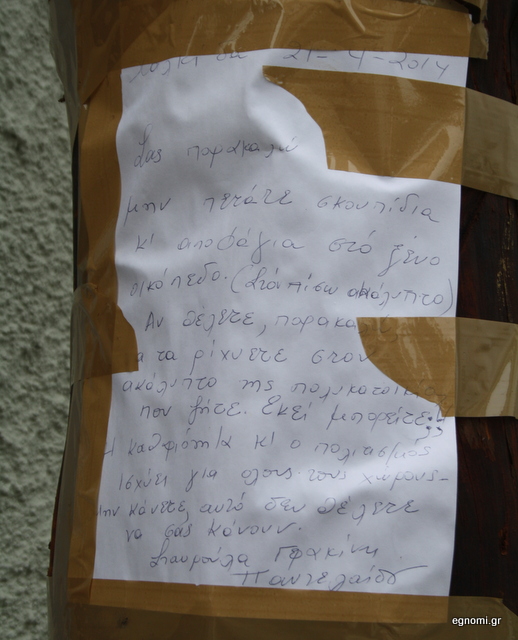 21-4-2014
Σας παρακαλώ
μην πετάτε σκουπίδια
κι αποφάγια στό ξένο
οικόπεδο. (Στό πίσω ακάλυπτο)
Αν θέλετε, παρακα
τα ρίχνετε στον
ακάλυπτο της πολυκατοικίας
που ζήτε. Εκεί μπορείτε;;
Η καθαριότητα κι ο πολιτισμός
ισχύει για όλους τους χώρους-
μην κάνετε, αυτό δεν θέλετε
να σας κάνουν.
Σταυρούλα
Παντελαίου
egnomi.gr